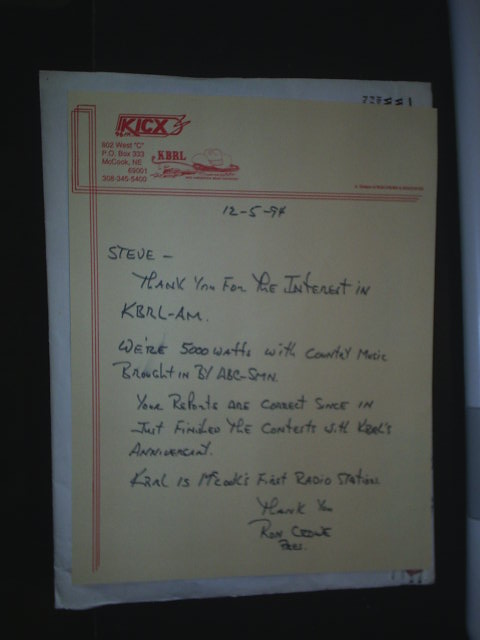 KICX
802 West "C"
P.O. Box 333
McCook, NE
69001
308-345-5400
KBRL
12-5-94
STEVE -
THANK YOU FOR THE INTEREST IN
KBRL-AM.
WE'RE 5000 WATTS WITH COUNTRY MUSIC
BROUGHT IN BY ABC-SMN.
YOUR REPORTS ARE CORRECT SINCE IN
JUST FINISHED THE CONTESTS WITH KBRL'S
ANNIVERSARY.
KBRL IS McCOOK'S FIRST RADIO STATION
THANK YOU
RON
PRES.